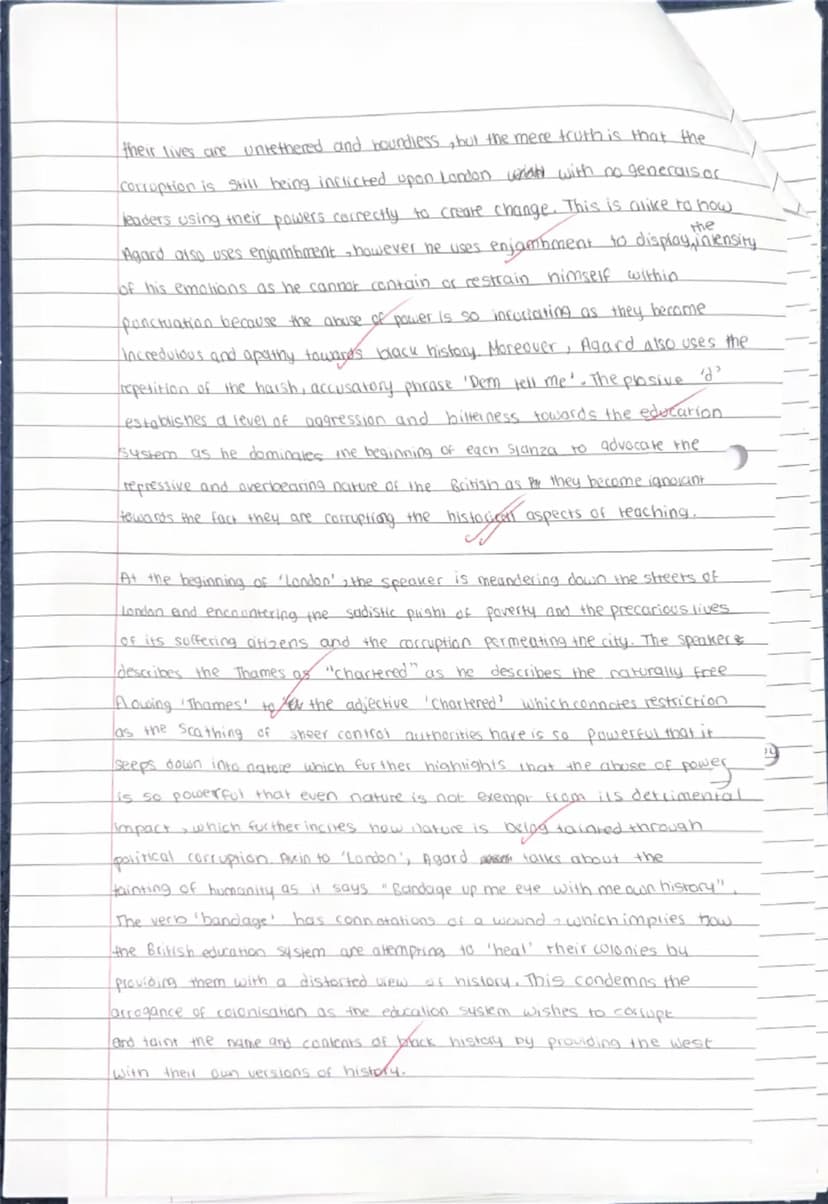 their lives are untethered and boundless, but the mere truth is that the
corruption is still being inflicted upon London with no generals or
leaders using their powers correctly to create change. This is alike to how
Agard also uses enjambment, however he uses enjambment to display the intensity
of his emotions as he cannot contain or restrain himself within
punctuation because the abuse of power is so infuriating as they become
incredulous and apathy towards black history. Moreover, Agard also uses the
repetition of the harsh, accusatory phrase 'Dem tell me'. The plosive 'd'
establishes a level of aggression and bitterness towards the education
system as he dominates the beginning of each stanza to advocate the
repressive and overbearing nature of the British as they become ignorant
towards the fact they are corrupting the historical aspects of teaching.
At the beginning of 'London', the speaker is meandering down the streets of
London and encountering the sadistic plight of poverty and the precarious lives
of its suffering citizens and the corruption permeating the city. The speaker
describes the Thames as "chartered" as he describes the naturally free
flowing 'Thames' to the adjective 'chartered' which connotes restriction
as the scathing of sheer control authorities have is so powerful that it
seeps down into nature which further highlights that the abuse of power
is so powerful that even nature is not exempt from its detrimental
impact, which further incites how nature is being tainted through
political corruption. Akin to 'London', Agard talks about the
tainting of humanity as it says "Bandage up me eye with me own history".
The verb 'bandage' has connotations of a wound, which implies how
the British education system are attempting to 'heal' their colonies by
providing them with a distorted view of history. This condemns the
arrogance of colonisation as the education system wishes to corrupt
and taint the name and contents of black history by providing the west
with their own versions of history.